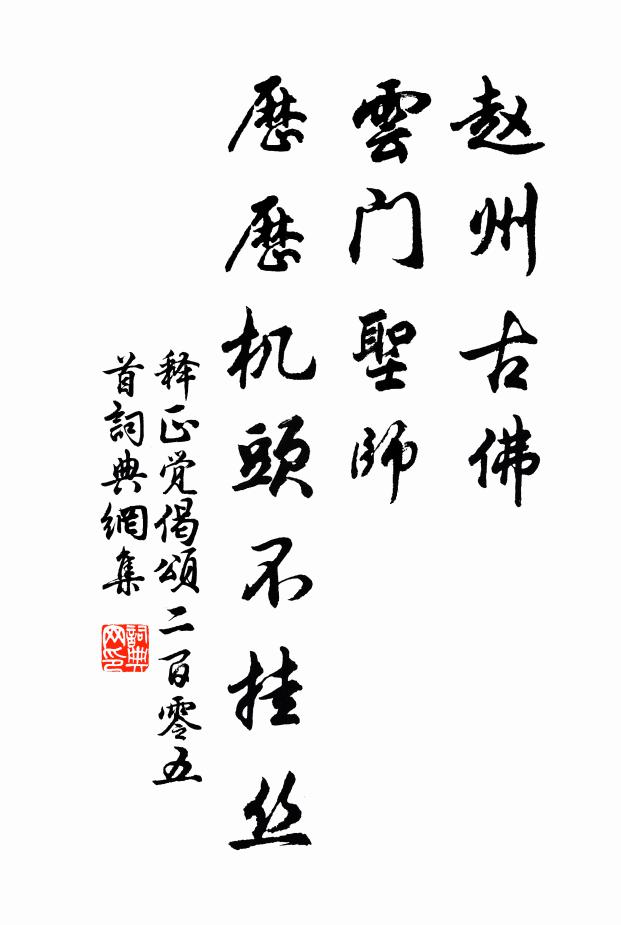 赵州古佛
雲门聖师
歷歷机頭不挂丝
释正觉偈頌二百零五
首詞典網集
詞典网印